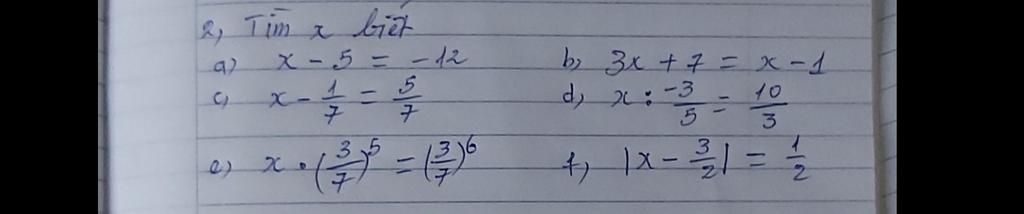 2, Tìm x biết
a) x - 5 = -12 b, 3x + 7 = x - 1
c, x - 1/7 = 5/7 d, x : -3/5 = 10/3
e) x . (3/7)^5 = (3/7)^6 f, |x - 3/2| = 1/2